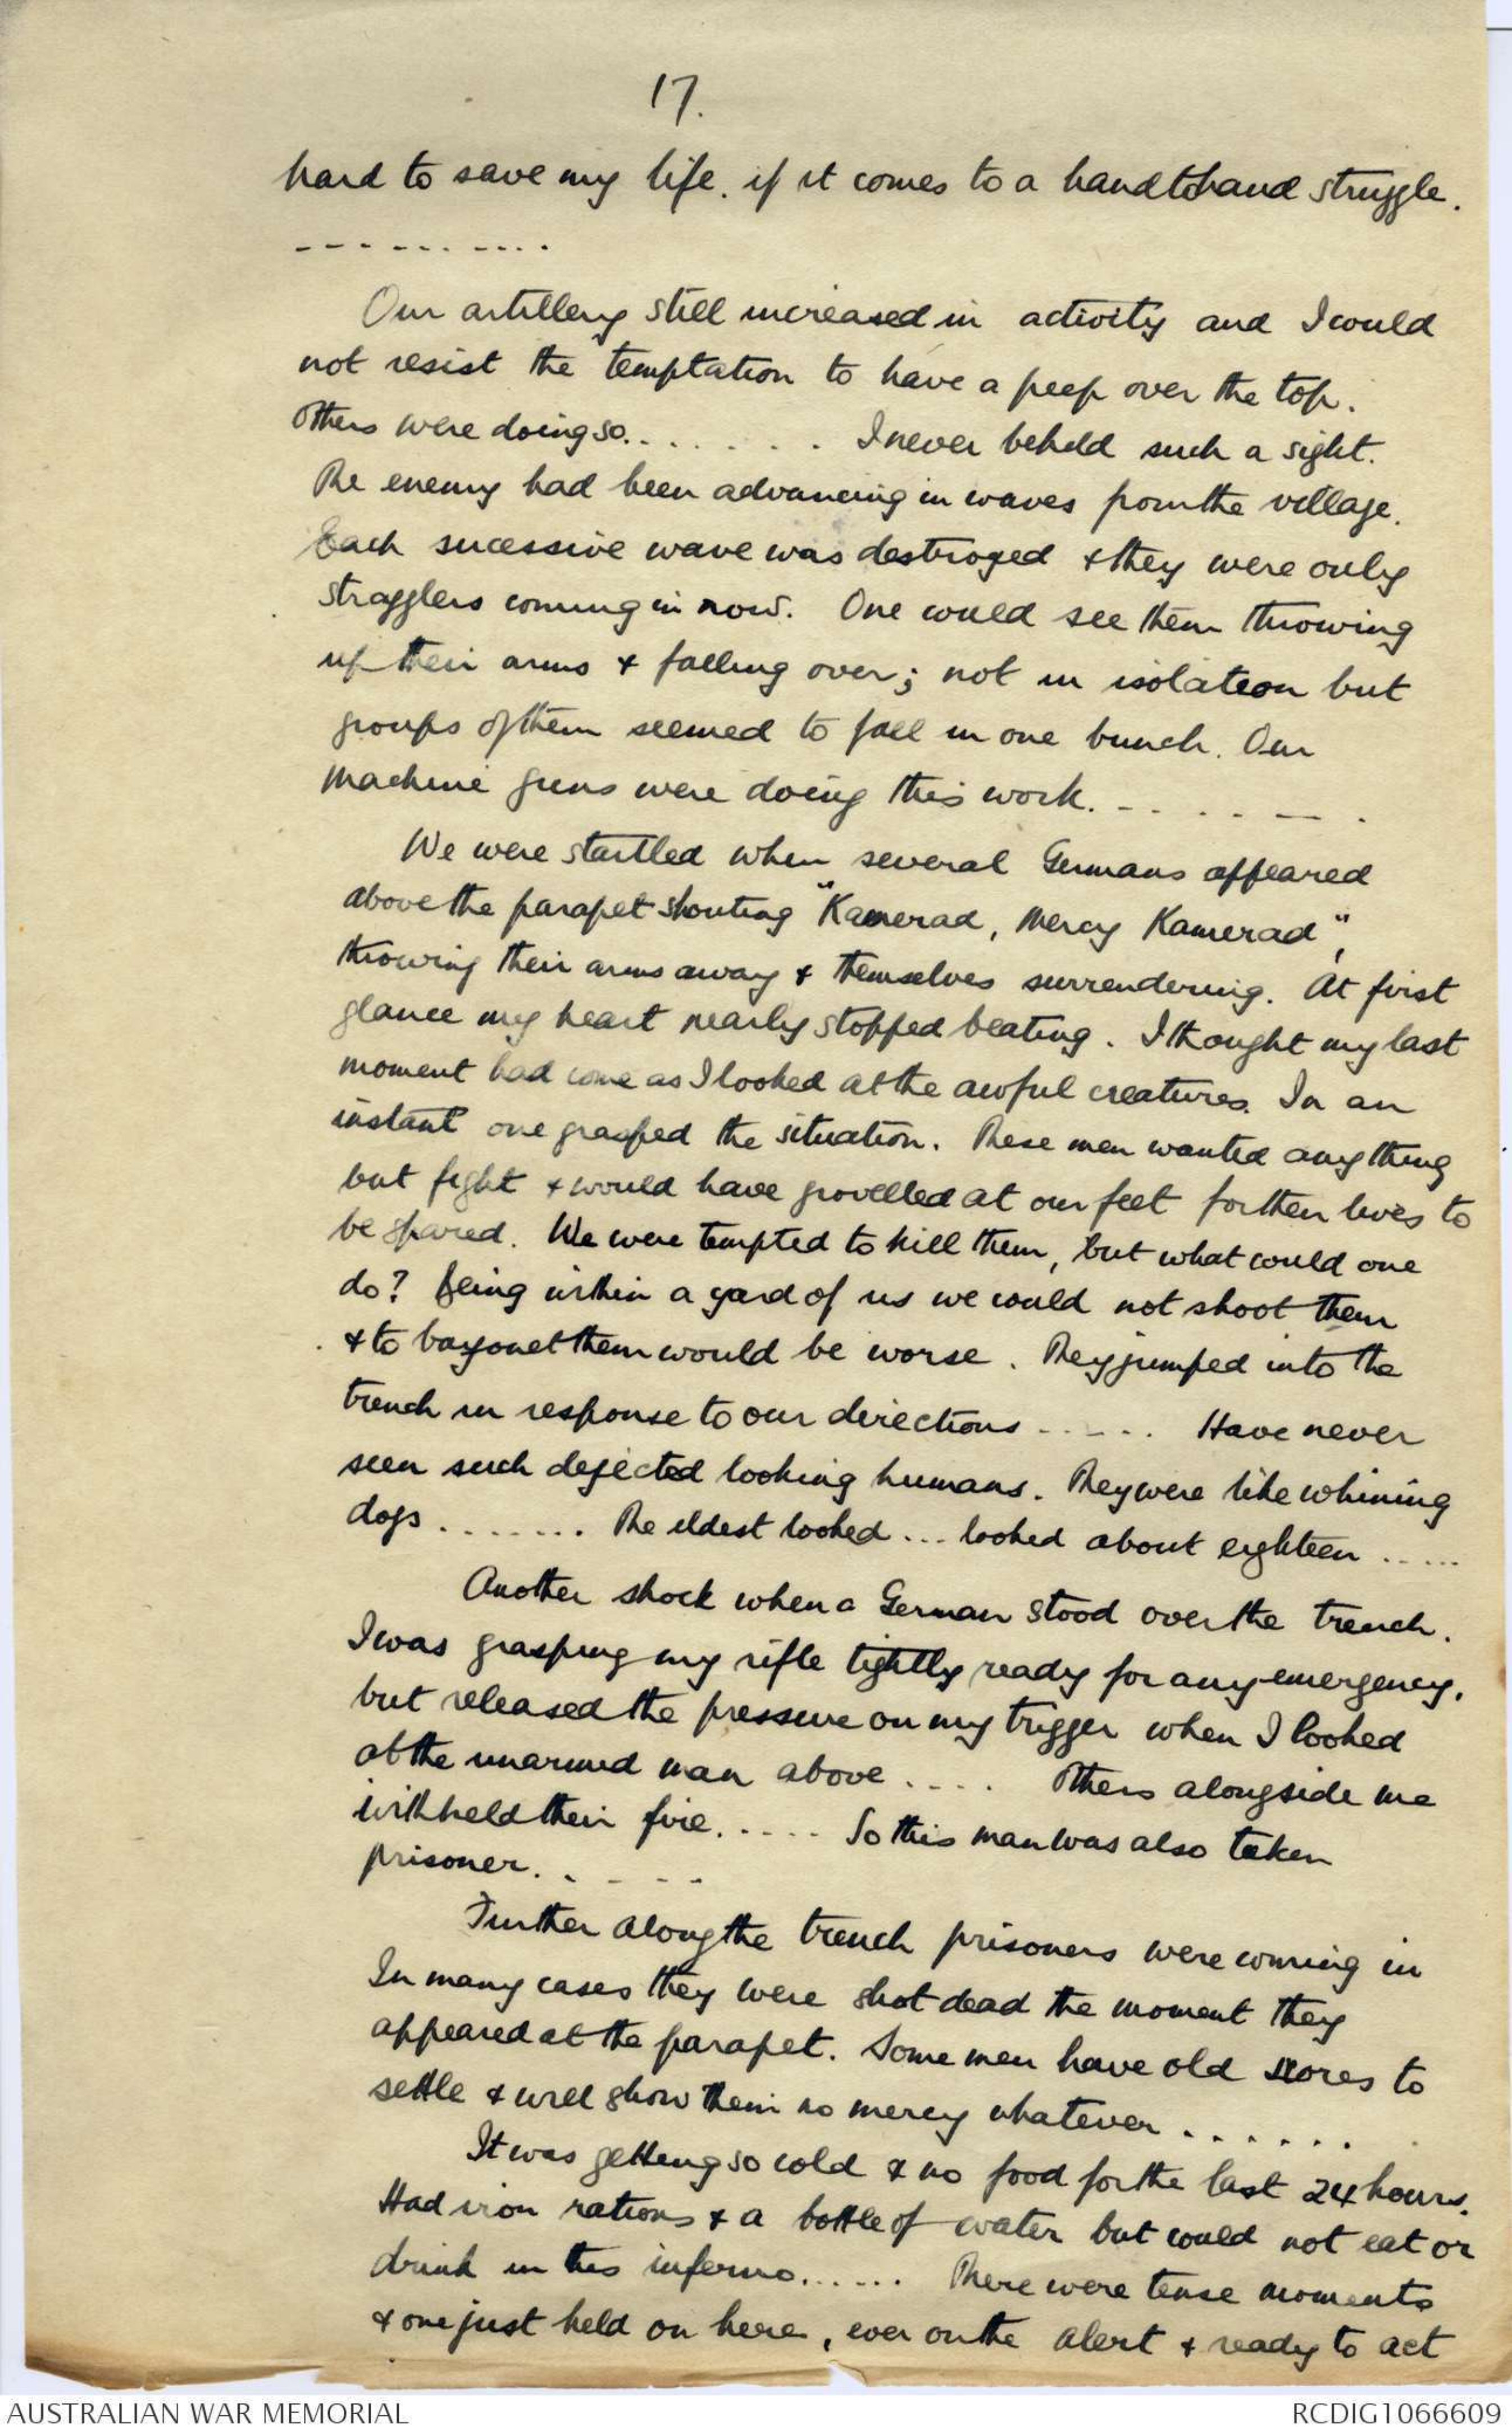 17.
hard to save my life. if it comes to a handtohand struggle.
- - - - - . - - . .
Our artillery still increased in activity and I could
not resist the temptation to have a peep over the top.
Others were doing so. . . . . . . . I never beheld such a sight.
The enemy had been advancing in waves from the village.
Each sucessive wave was destroyed & they were only
stragglers coming in now. One could see them throwing
up their arms & falling over; not in isolation but
groups of them seemed to fall in one bunch. Our
machine guns were doing this work. - - . . . - .
We were startled when several Germans appeared
above the parapet shouting "Kamerad, Mercy Kamerad",
throwing their arms away & themselves surrendering. At first
glance my heart nearly stopped beating. I thought my last
moment had come as I looked at the awful creatures. In an
instant one grasped the situation. These men wanted anything
but fight & would have grovelled at our feet for their lives to
be spared. We were tempted to kill them, but what could one
do? Being within a yard of us we could not shoot them
& to bayonet them would be worse. They jumped into the
trench in response to our directions . . . . . . Have never
seen such dejected looking humans. They were like whining
dogs . . . . . . . . The eldest looked ... looked about eighteen . . . . .
Another shock when a German stood over the trench.
I was grasping my rifle tightly ready for any emergency,
but released the pressure on my trigger when I looked
at the unarmed man above . . . . Others alongside me
withheld their fire. . . . . . So this man was also taken
prisoner. . - - - -
Further along the trench prisoners were coming in
In many cases they were shot dead the moment they
appeared at the parapet. Some men have old scores to
settle & will show them no mercy whatever . . . . . . .
It was getting so cold & no food for the last 24 hours.
Had iron rations & a bottle of water but could not eat or
drink in this inferno. . . . . . There were tense moments
& one just held on here, ever on the alert & ready to act
AUSTRALIAN WAR MEMORIAL
RCDIG1066609